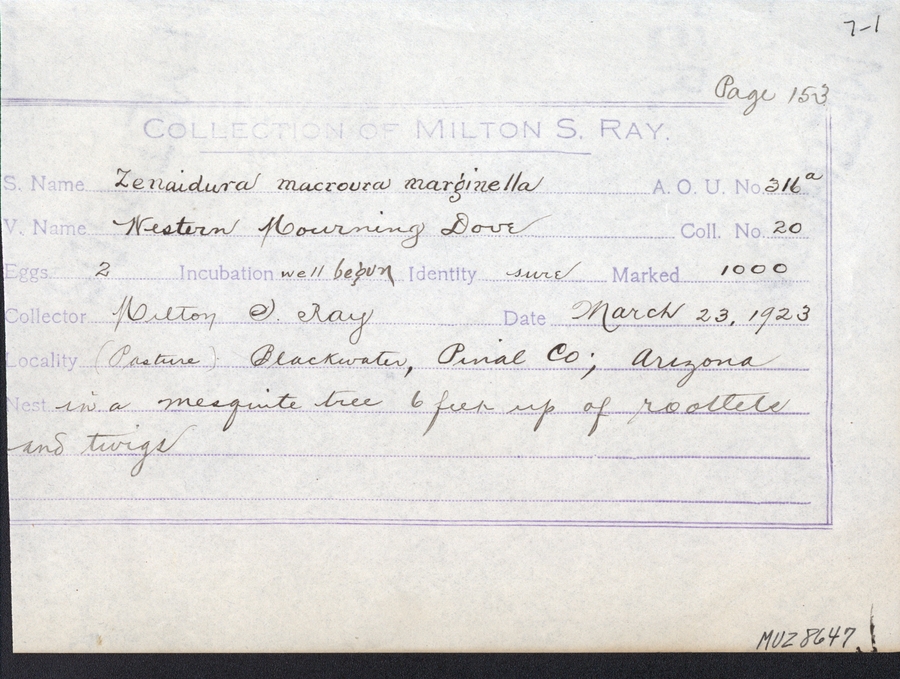 7-1
Page 153
COLLECTION OF MILTON S. RAY.
S. Name Zenaidura macroura marginella A. O. U. No. 316a
V. Name Western Mourning Dove Coll. No. 20
Eggs. 2 Incubation well begun Identity sure Marked 1000
Collector Milton S. Ray Date March 23, 1923
Locality (Pasture) Blackwater, Pinal Co; Arizona
Nest in a mesquite tree 6 feet up of rootlets
and twigs
MUZ 8647